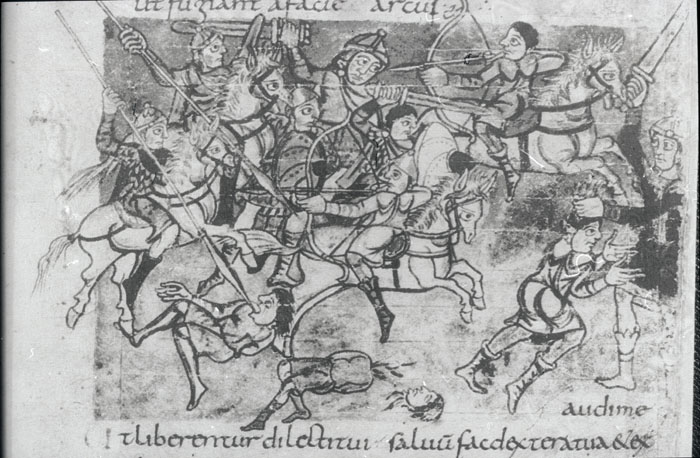 ut fugiant a facie arcus
audi me
Ut liberentur dilecti tui salvum fac dextera tua & ex